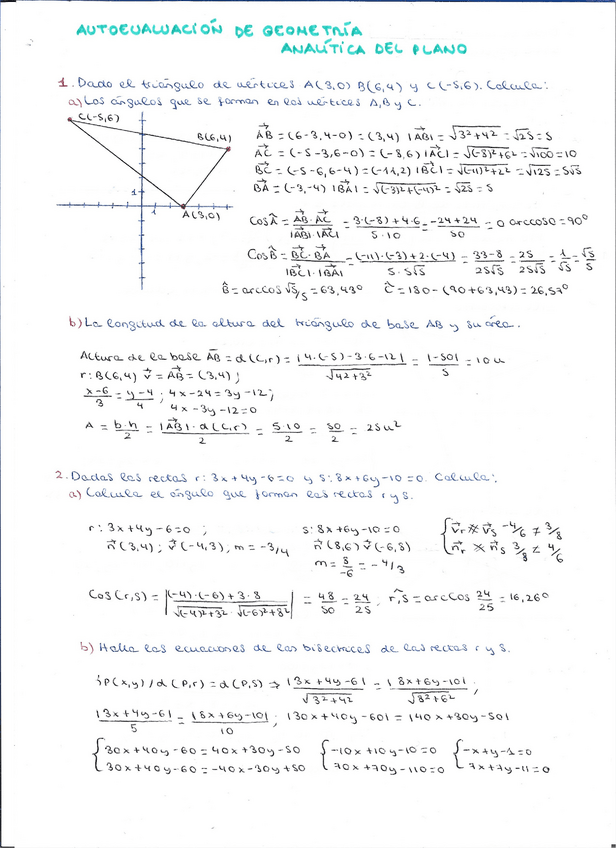 AUTOEVALUACIÓN DE GEOMETRÍA
ANALÍTICA DEL PLANO
1. Dado el triángulo de vértices A(3,0) B(6,4) y C(-5,6). Calcula:
a) Los ángulos que se forman en los vértices A, B y C.
C(-5,6)
B(6,4)
A(3,0)
1
1
AB = (6-3, 4-0) = (3,4) |AB| = √3²+4² = √25 = 5
AC = (-5-3, 6-0) = (-8,6) |AC| = √(-8)²+6² = √100 = 10
BC = (-5-6, 6-4) = (-11,2) |BC| = √(-11)²+2² = √125 = 5√5
BA = (-3,-4) |BA| = √(-3)²+(-4)² = √25 = 5
Cos Â = AB·AC / |AB|·|AC| = 3·(-8)+4·6 / 5·10 = -24+24 / 50 = 0 arccos0 = 90º
Cos B̂ = BC·BA / |BC|·|BA| = (-11)·(-3)+2·(-4) / 5·5√5 = 33-8 / 25√5 = 25 / 25√5 = 1/√5 = √5/5
B̂ = arccos √5/5 = 63,43º Ĉ = 180-(90+63,43) = 26,57º
b) La longitud de la altura del triángulo de base AB y su área.
Altura de la base AB = d(C,r) = |4·(-5)-3·6-12| / √4²+3² = |-50| / 5 = 10 u
r: B(6,4) v = AB = (3,4);
x-6 / 3 = y-4 / 4 ; 4x-24 = 3y-12;
4x-3y-12=0
A = b·h / 2 = |AB|·d(C,r) / 2 = 5·10 / 2 = 50 / 2 = 25u²
2. Dadas las rectas r: 3x+4y-6=0 y s: 8x+6y-10=0. Calcula:
a) Calcula el ángulo que forman las rectas r y s.
r: 3x+4y-6=0 ; s: 8x+6y-10=0
n(3,4) ; v(-4,3) ; m = -3/4 n(8,6) v(-6,8)
m = 8/-6 = -4/3
{ vr ∦ vs -4/6 ≠ 3/8
nr ∦ ns 3/8 ≠ 4/6
Cos(r,s) = |(-4)·(-6)+3·8 / √(-4)²+3² · √(-6)²+8²| = 48/50 = 24/25 , r,s = arccos 24/25 = 16,26º
b) Halla las ecuaciones de las bisectrices de las rectas r y s.
P(x,y) / d(P,r) = d(P,s) ⇒ |3x+4y-6| / √3²+4² = |8x+6y-10| / √8²+6² ;
|3x+4y-6| / 5 = |8x+6y-10| / 10 ; |30x+40y-60| = |40x+30y-50|
{ 30x+40y-60 = 40x+30y-50 { -10x+10y-10=0 { -x+y-1=0
30x+40y-60 = -40x-30y+50 70x+70y-110=0 7x+7y-11=0